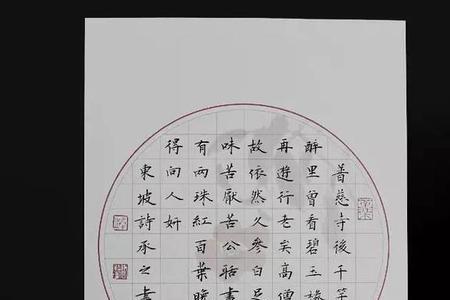 普慈寺後千竿
醉里曾看碧玉椽
再遊行老矣高僧
故依然久參白足
味苦厭苦公聒晝
有兩珠紅百葉晚
得向人妍
東坡詩承之書